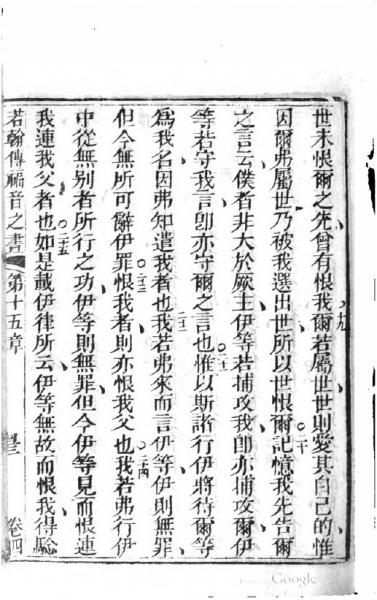 世未恨爾之先曾有恨我十九爾若屬世世則愛其自己的惟
因爾弗屬世乃被我選出世所以世恨爾二十記憶我先告爾
之言云僕者非大於厥主伊等若捕攻我卽亦捕攻爾伊
等若守我言卽亦守爾之言也二十一惟以斯諸行伊將待爾等
爲我名因弗知遣我者也二十二我若弗來而言伊等伊則無罪
但今無所可辭伊罪二十三恨我者則亦恨我父也二十四我若弗行伊
中從無別者所行之功伊等則無罪但今伊等見而恨連
我連我父者也二十五如是載伊律所云伊等無故而恨我得驗
若翰傳福音之書 第十五章 卷四
Google